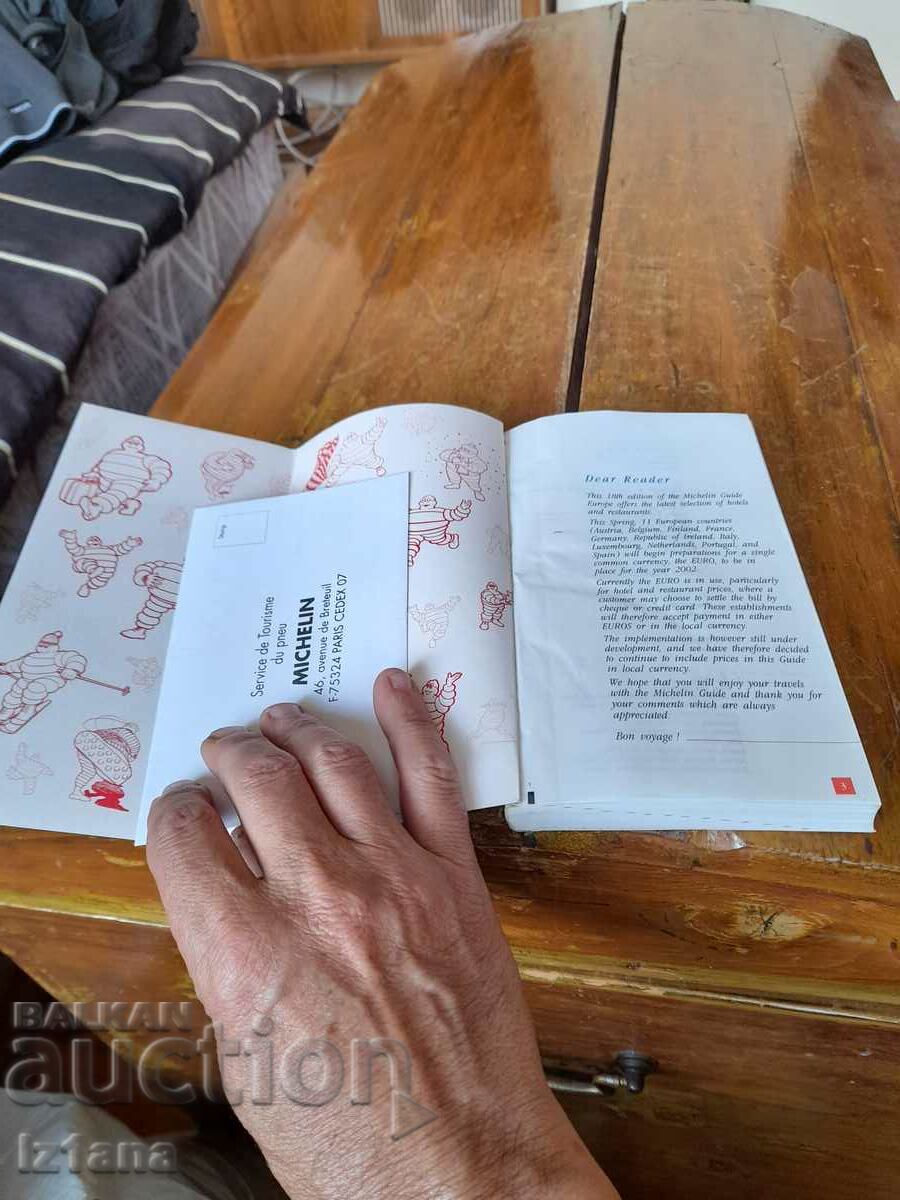 Stamp
Service de Tourisme
du pneu
MICHELIN
46, avenue de Breteuil
F-75324 PARIS CEDEX 07
Dear Reader
This 18th edition of the Michelin Guide
Europe offers the latest selection of hotels
and restaurants.
This Spring, 11 European countries
(Austria, Belgium, Finland, France,
Germany, Republic of Ireland, Italy,
Luxembourg, Netherlands, Portugal, and
Spain) will begin preparations for a single
common currency, the EURO, to be in
place for the year 2002.
Currently the EURO is in use, particularly
for hotel and restaurant prices, where a
customer may choose to settle the bill by
cheque or credit card. These establishments
will therefore accept payment in either
EUROS or in the local currency.
The implementation is however still under
development, and we have therefore decided
to continue to include prices in this Guide
in local currency.
We hope that you will enjoy your travels
with the Michelin Guide and thank you for
your comments which are always
appreciated.
Bon voyage !
3
BALKAN
auction
iz1ana